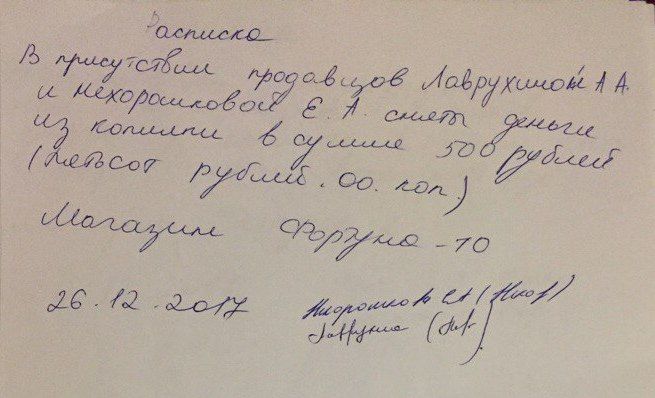 Расписка
В присутствии продавцов Лаврухиной А А.
и Нехорошковой Е. А. сняты деньги
из копилки в сумме 500 рублей
(петьсот рублей. 00. коп.)
Магазин Фортуна - 10
26.12.2017 Нехорошкова ЕА
Лаврухина